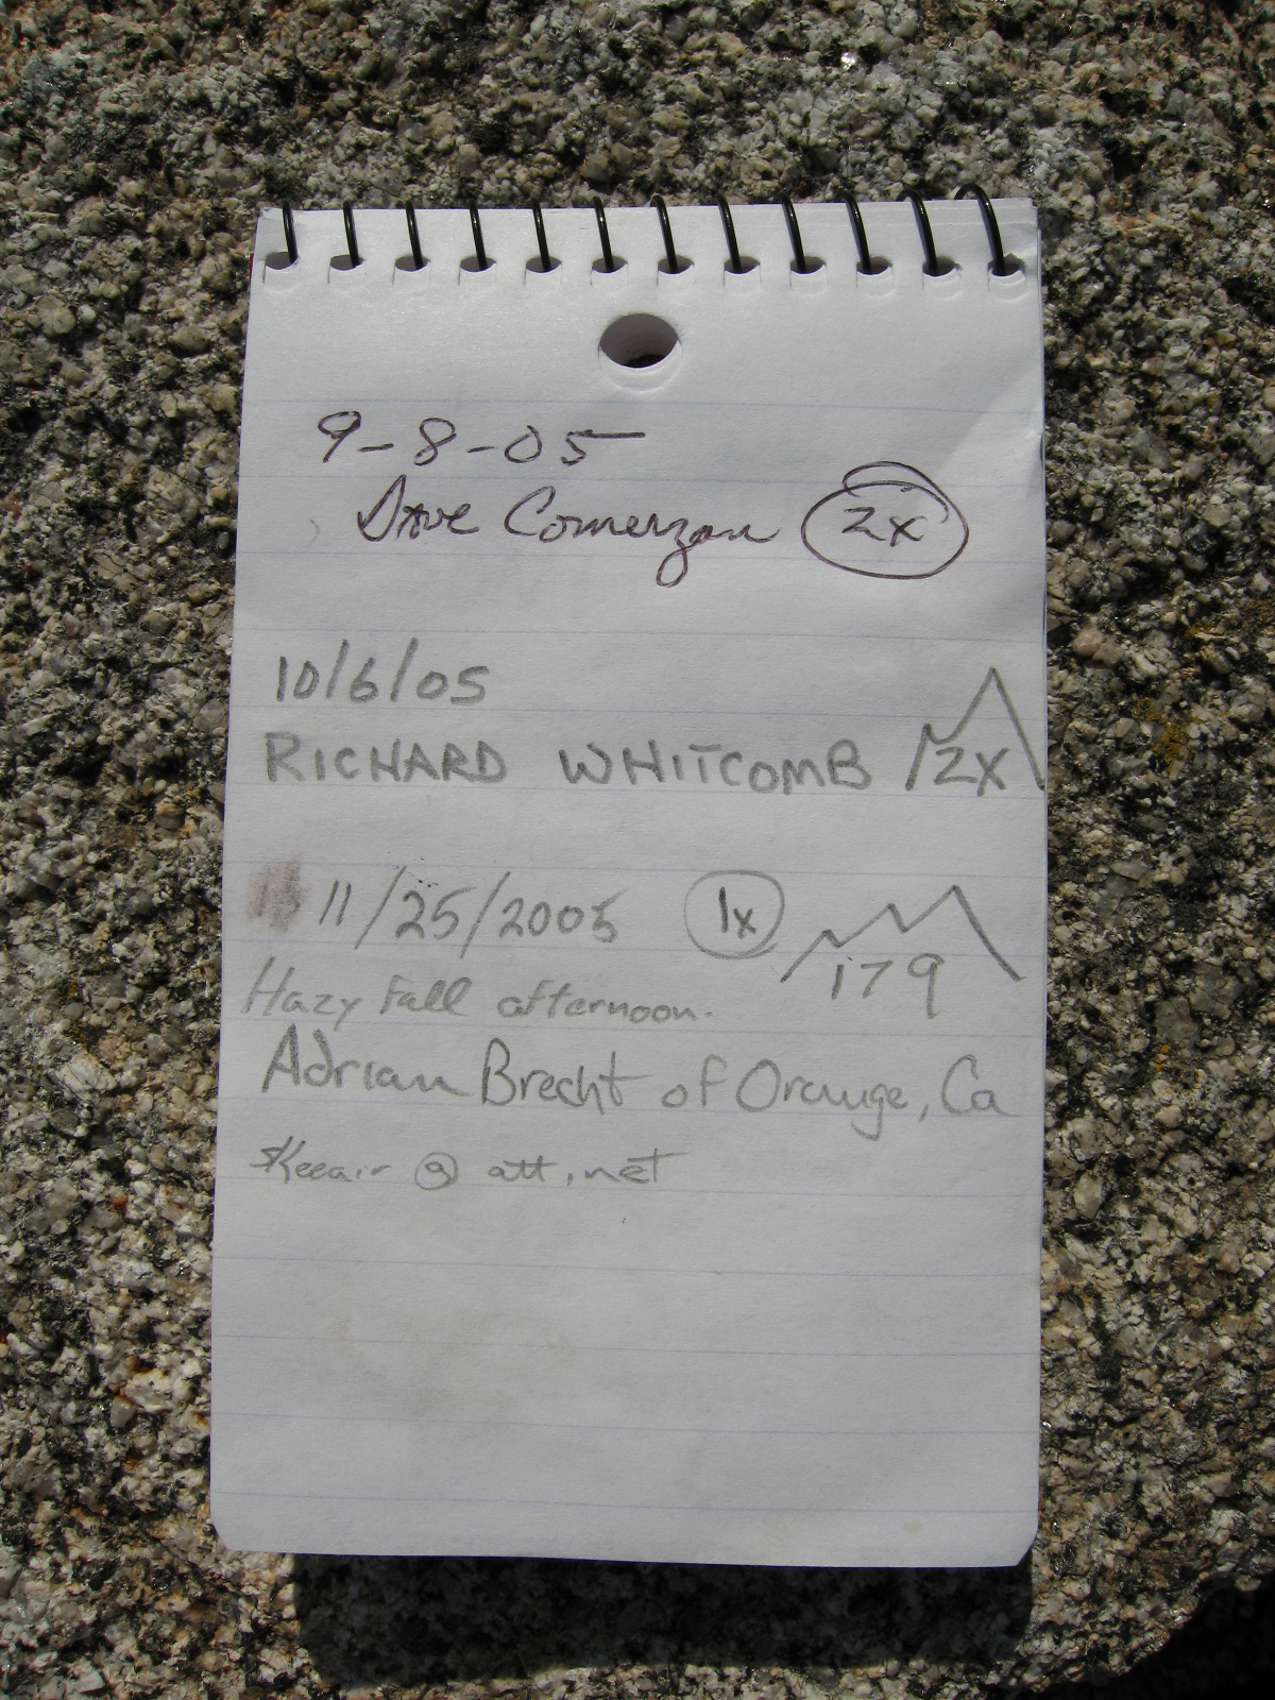 9-8-05
Dave Comerzan 2x
10/6/05
RICHARD WHITCOMB 2X
11/25/2005 1x
179
Hazy Fall afternoon.
Adrian Brecht of Orange, Ca
skeeair @ att.net